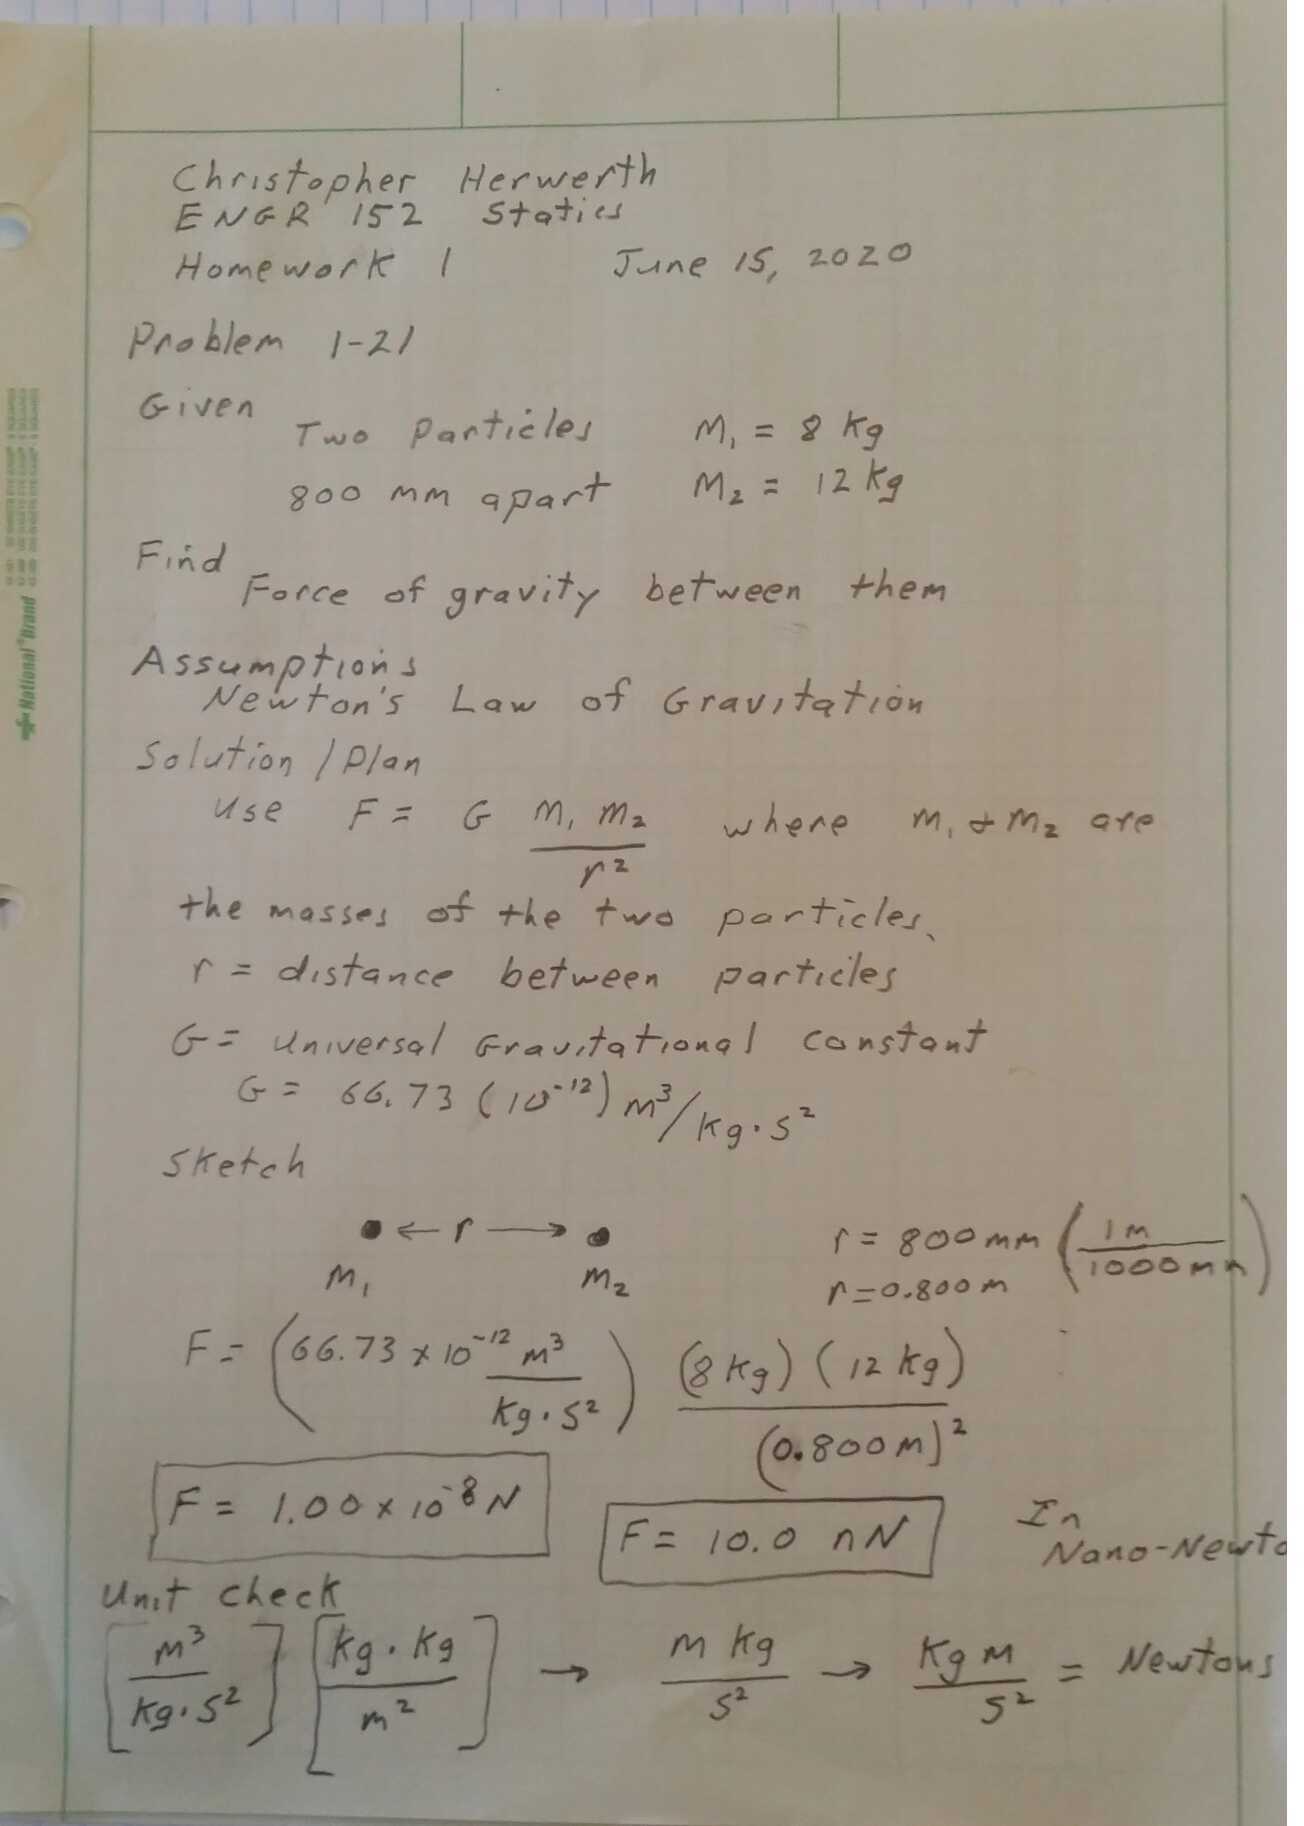 Christopher Herwerth
ENGR 152 Statics
Homework 1 June 15, 2020
Problem 1-21
Given
Two Particles M₁ = 8 kg
800 mm apart M₂ = 12 kg
Find
Force of gravity between them
Assumptions
Newton's Law of Gravitation
Solution / Plan
Use F = G M₁ M₂ / r² where M₁ & M₂ are
the masses of the two particles.
r = distance between particles
G = Universal Gravitational constant
G = 66.73 (10⁻¹²) m³/kg·s²
Sketch
← r →
M₁ M₂
r = 800 mm (1 m / 1000 mm)
r = 0.800 m
F = (66.73 x 10⁻¹² m³ / kg·s²) (8 kg) (12 kg) / (0.800 m)²
F = 1.00 x 10⁻⁸ N
F = 10.0 nN
In
Nano-Newto
Unit Check
[m³ / kg·s²] [kg·kg / m²] → m kg / s² → kg m / s² = Newtons
National Brand